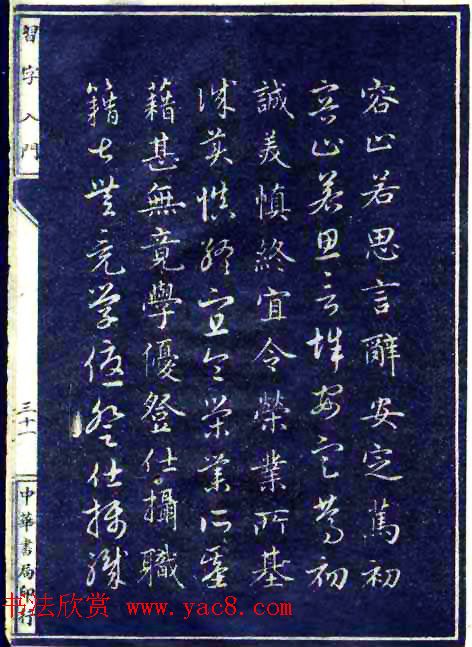 容止若思言辭安定篤初
容止若思言辭安定篤初
誠美慎終宜令榮業所基
誠美慎終宜令榮業所基
藉甚無竟學優登仕攝職
籍甚無竟学優登仕攝職
習字入門
三十一
中華書局印行
书法欣赏 www.yac8.com